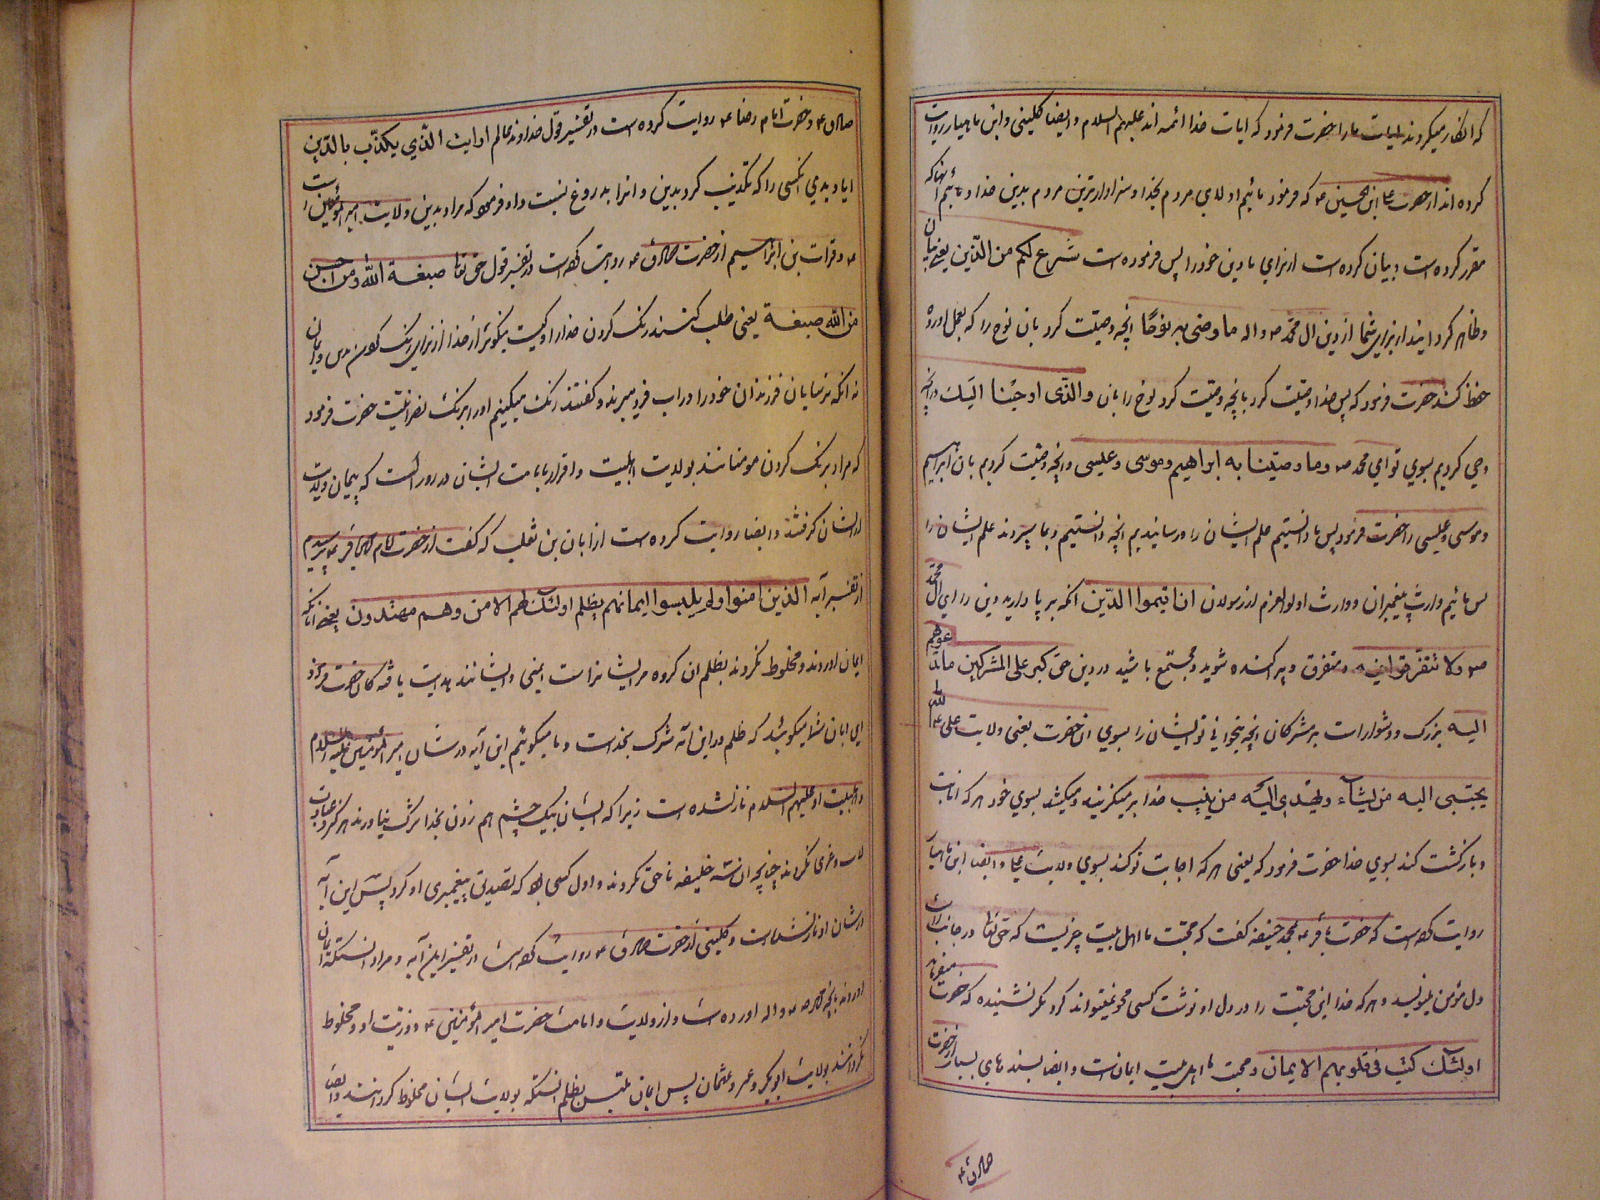 که انکار میکردند بایات ما را حضرت فرمود که ایات خدا ائمه اند علیهم السلام و ایضا کلینی و ابن ماهیار روایت
کرده اند از حضرت علی ابن الحسین ع که فرمود مائیم اولای مردم بخدا و سزاوارترین مردم بدین خدا و مائیم انها که
مقرر کرده است و بیان کرده است از برای ما دین خود را پس فرموده است شرع لکم من الدین یعنی بیان
و ظاهر کردانید از برای شما از دین ال محمد ص و اله ما وصی به نوحا انچه وصیت کرد بان نوح را که بعمل اورده
حفظ کند حضرت فرمود که پس خدا وصیت کرد بانچه وصیت کرد نوح را بان والذی اوحینا الیک و انچه
وحی کردیم بسوی تو ای محمد ص وما وصینا به ابراهیم وموسی وعیسی و انچه وصیت کردیم بان ابراهیم
و موسی و عیسی را حضرت فرمود پس ما دانستیم علم ایشان را و رسانیدیم انچه دانستیم و بما سپردند علم ایشان را
پس مائیم وارث پیغمبران و وارث اولوالعزم از رسولان ان اقیموا الدین انکه بر پا دارید دین را ای ال محمد
ص ولا تتفرقوا فیه و متفرق و پراکنده شوید و مجتمع باشید در دین حق کبر علی المشرکین ما تدعوهم
الیه بزرک و دشوار است بر مشرکان انچه میخوانی تو ایشان را بسوی ان حضرت یعنی ولایت علی ع الله
یجتبی الیه من یشاء ویهدی الیه من ینیب خدا بر میکزیند و میکشد بسوی خود هر که انابت
و بازکشت کند بسوی خدا حضرت فرمود که یعنی هر که اجابت تو کند بسوی ولایت علی و ایضا ابن ماهیار
روایت کرده است که حضرت باقر ع بمحمد حنفیه کفت که محبت ما اهل بیت چیزیست که حق تعالی در جانب راست
دل مؤمن مینویسد و هر که خدا این محبت را در دل او نوشت کسی محو نمیتواند کرد مکر نشنیده که حضرت میفرماید
اولئک کتب فی قلوبهم الایمان و محبت ما اهل بیت ایمان است و ایضا بسند های بسیار از حضرت
صادق ع
صادق ع و حضرت امام رضا ع روایت کرده است در تفسیر قول خداوند عالم ارایت الذی یکذب بالدین
ایا دیدی انکسی را که تکذیب کرد بدین و انرا بدروغ نسبت داد فرمود که مراد بدین ولایت امیر المؤمنین است
ع و فرات بن ابراهیم از حضرت صادق ع روایت کرده است در تفسیر قول حق تعالی صبغة الله ومن احسن
من الله صبغة یعنی طلب کنند رنک کردن خدا را و کیست نیکوتر از خدا از برای رنک کردن
نه انکه ترسایان فرزندان خود را در اب فرو میبرند و کفتند رنک میکنیم او را برنک نصرانیت حضرت فرمود
که مراد برنک کردن مومنانند بولایت اهلبیت و اقرار بامامت ایشان در روز الست که پیمان ولایت
از ایشان کرفتند و ایضا روایت کرده است از ابان بن تغلب که کفت از حضرت امام محمد باقر ع پرسیدم
از تفسیر آیه الذین امنوا ولم یلبسوا ایمانهم بظلم اولئک لهم الامن وهم مهتدون یعنی انانکه
ایمان اوردند و مخلوط نکردند بظلم ان کروه مر ایشانراست ایمنی و ایشانند هدایت یافته کان حضرت فرمود
ای ابان شما میکوئید که ظلم در این آیه شرک بخداست و ما میکوئیم این آیه در شان امیر المؤمنین علیه السلام
و اهلبیت او علیهم السلام نازل شده است زیرا که ایشان بیک چشم هم زدن بخدا شرک نیاوردند هرکز و عبادت
لات و عزی نکردند چنانچه ان سه خلیفه ناحق کردند و اول کسی بود که تصدیق پیغمبری او کرد پس این آیه
در شان او نازل شده است و کلینی از حضرت صادق ع روایت کرده است در تفسیر این آیه و مراد انستکه ایمان
اوردند بانچه محمد ص و اله اورده است از ولایت و امامت حضرت امیر المؤمنین ع و ذریت او و مخلوط
نکردانند بولایت ابو بکر و عمر و عثمان پس ایمان ملتبس بظلم انستکه بولایت ایشان مخلوط کردانند و ایضا